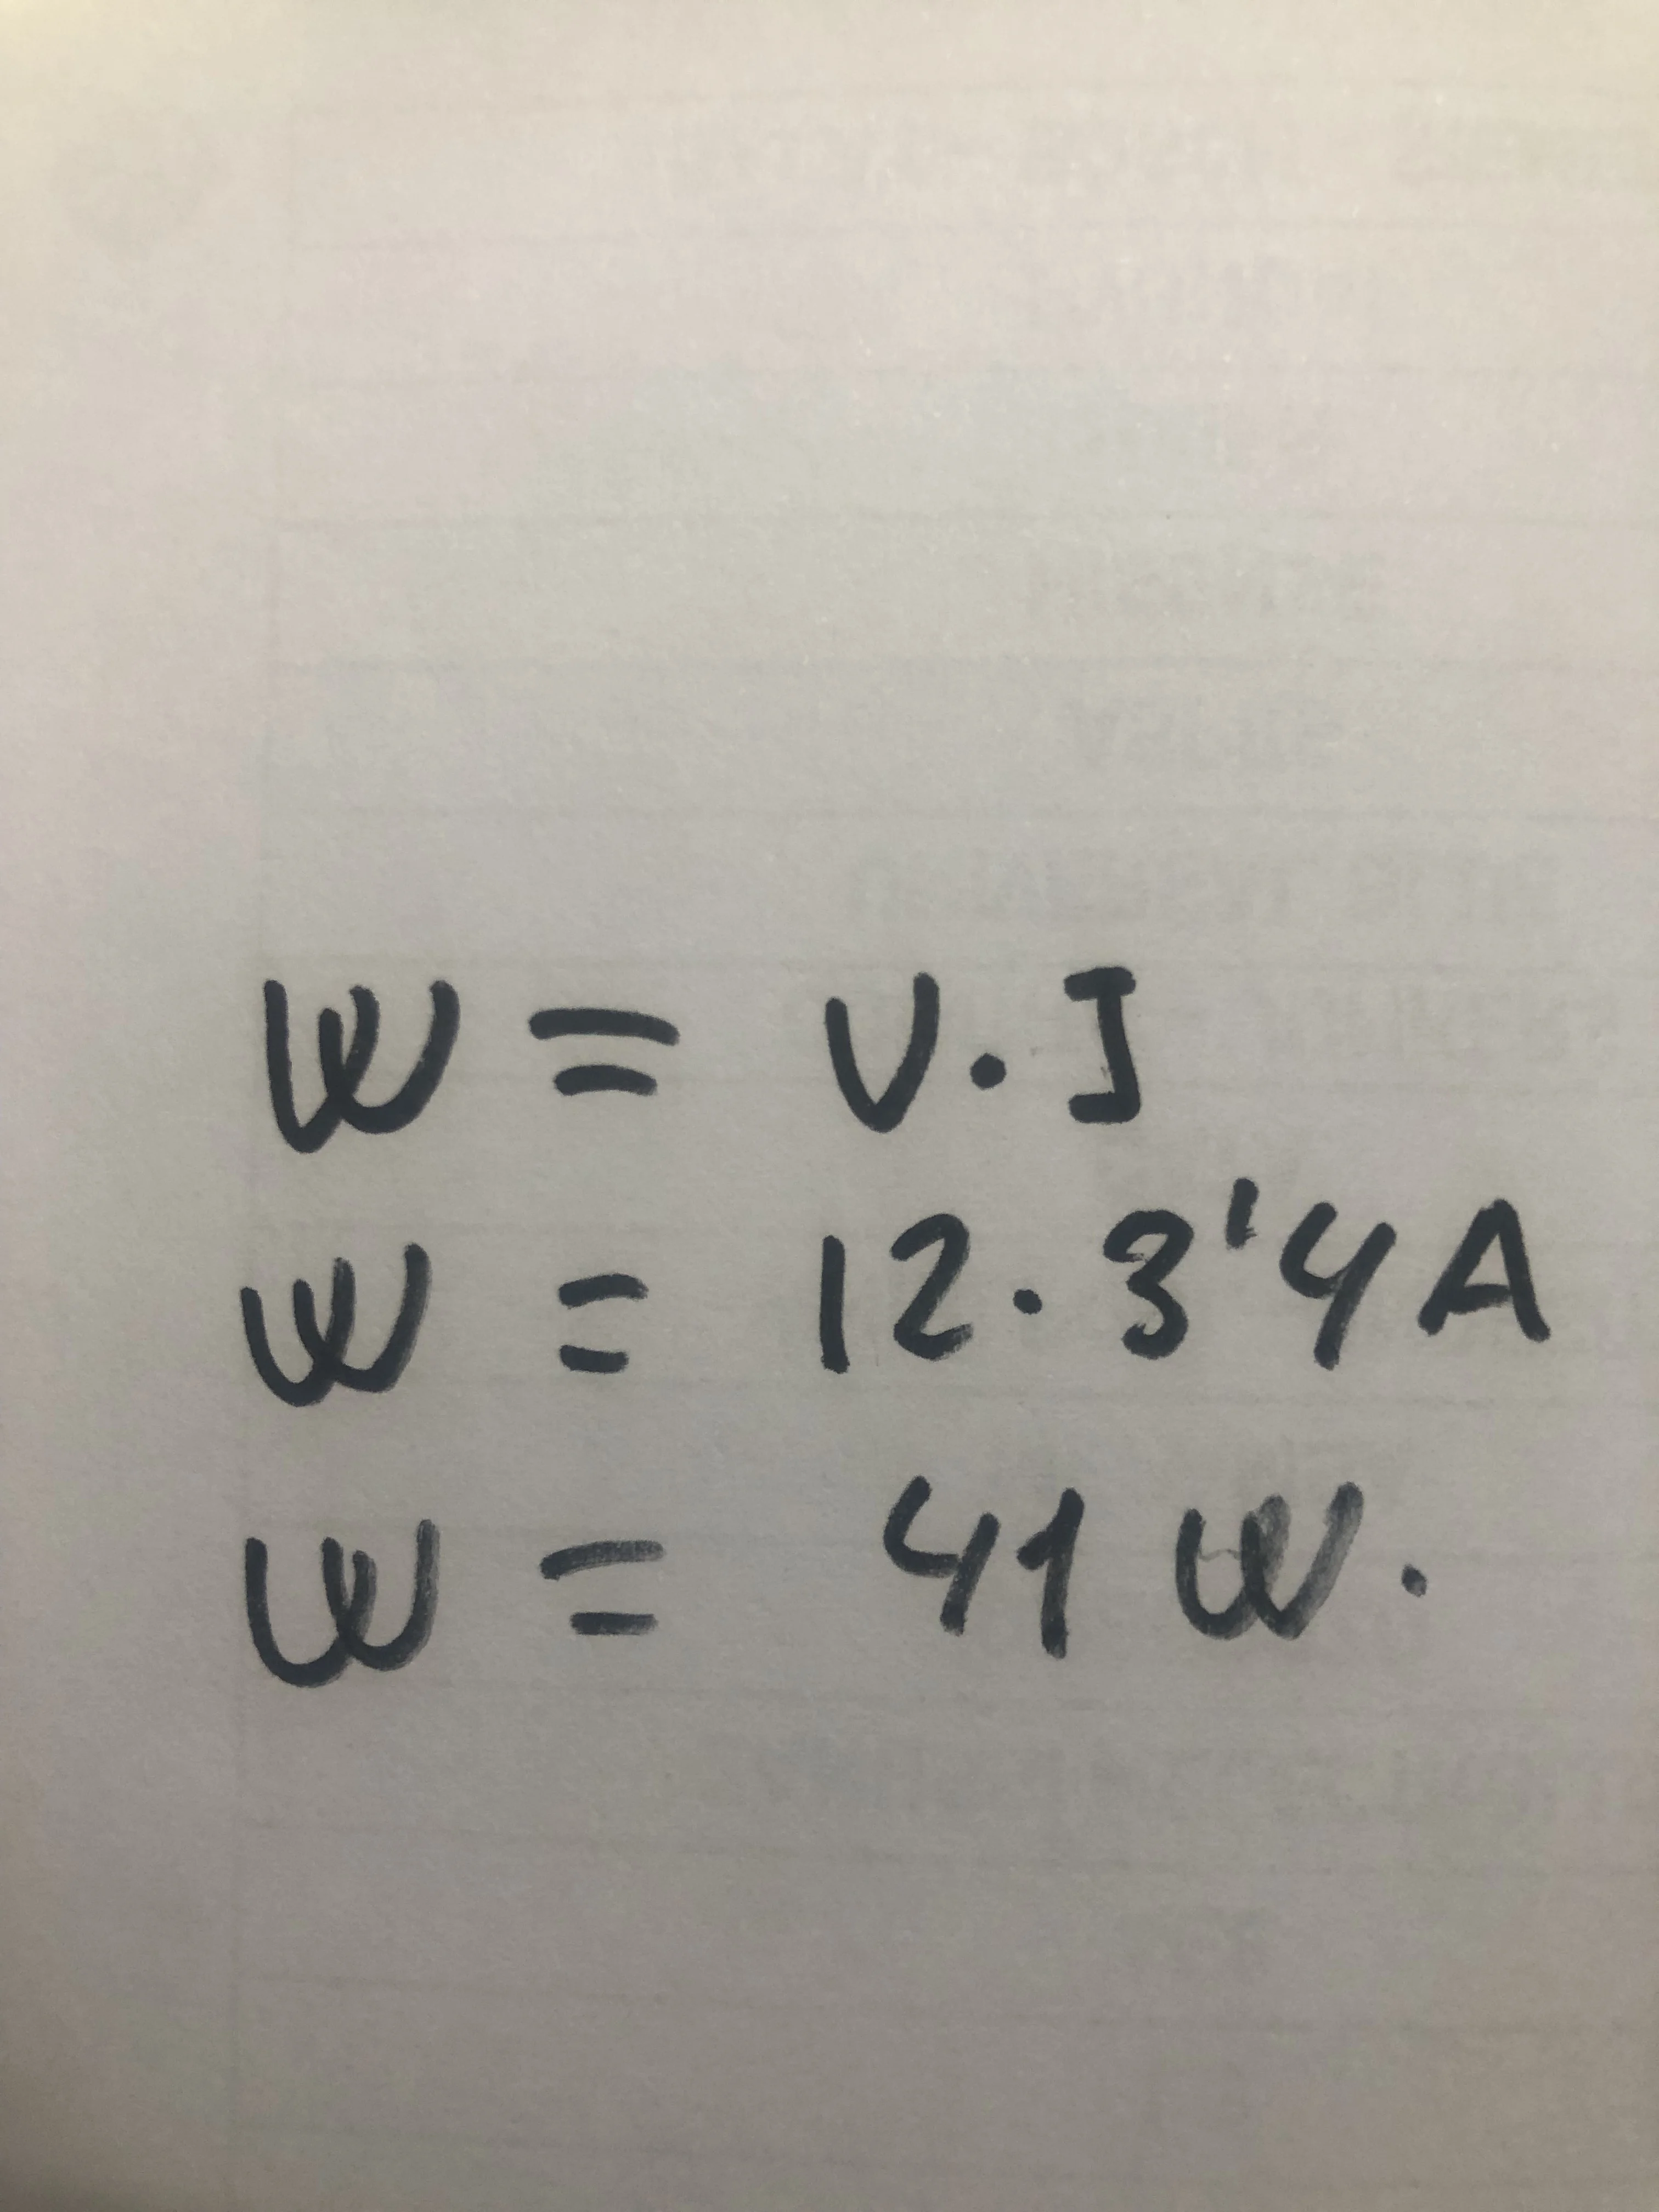 W = V.I
W = 12.3'4 A
W = 41 W.